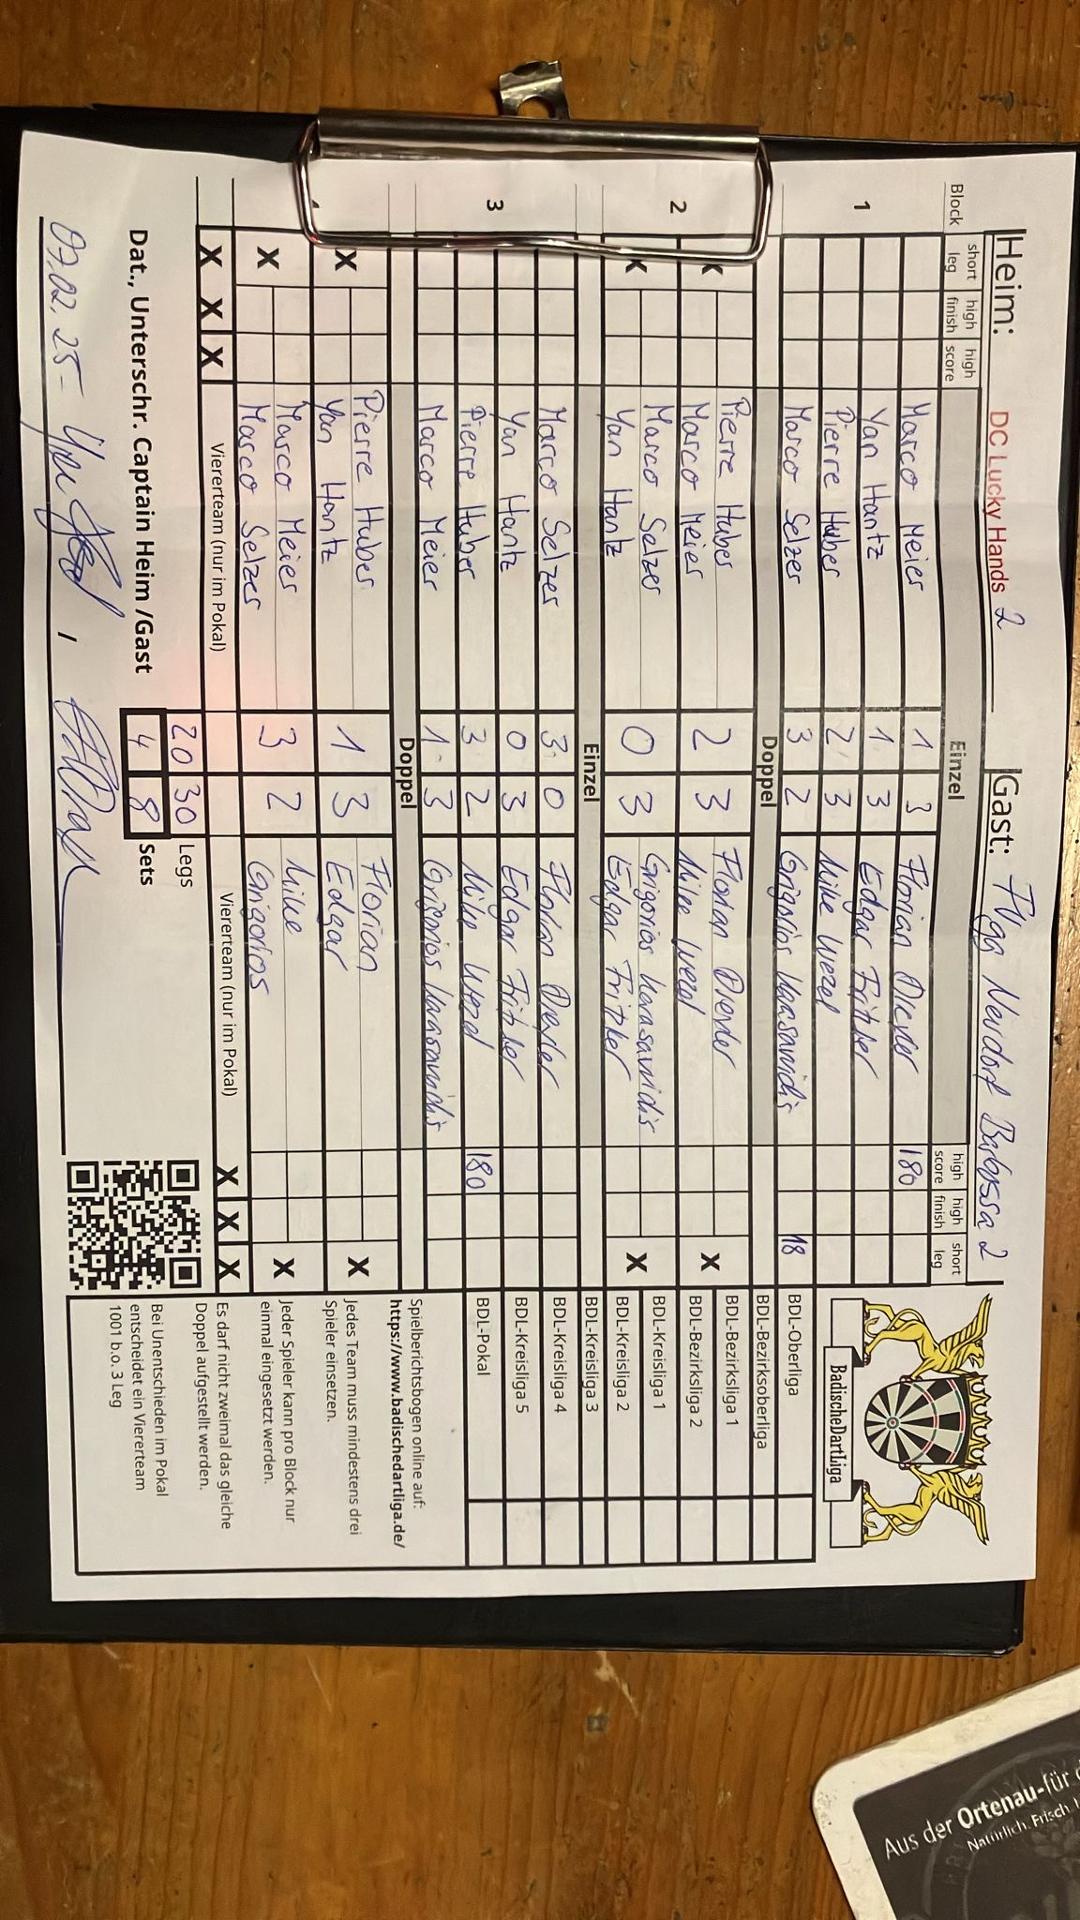 Heim: DC Lucky Hands 2 Gast: FVgg Neudorf Barbossa 2
Block short leg high finish high score Einzel high score high finish short leg
1
Marco Meier 1 3 Florian 180
Yan Hantz 1 3 Edgar Frither
Pierre Huber 2 3 Mike Wezel
Marco Selzer 3 2 Grigorios 18
Doppel
2
Pierre Huber 2 3 Florian
X Marco Meier Mike Wezel X
Marco Selzer 0 3 Grigorios
X Yan Hantz Edgar Frither X
Einzel
3
Marco Selzer 3 0 Florian
Yan Hantz 0 3 Edgar Frither
Pierre Huber 3 2 Mike Wezel 180
Marco Meier 1 3 Grigorios
Doppel
X Pierre Huber 1 3 Florian X
Yan Hantz Edgar
X Marco Meier 3 2 Mike X
Marco Selzer Grigorios
X X X Viererteam (nur im Pokal) Viererteam (nur im Pokal) X X X
20 30 Legs
Dat., Unterschr. Captain Heim /Gast 4 8 Sets
09.02.25
BadischeDartLiga
BDL-Oberliga
BDL-Bezirksoberliga
BDL-Bezirksliga 1
BDL-Bezirksliga 2
BDL-Kreisliga 1
BDL-Kreisliga 2
BDL-Kreisliga 3
BDL-Kreisliga 4
BDL-Kreisliga 5
BDL-Pokal
Spielberichtsbogen online auf:
https://www.badischedartliga.de/
Jedes Team muss mindestens drei
Spieler einsetzen.
Jeder Spieler kann pro Block nur
einmal eingesetzt werden.
Es darf nicht zweimal das gleiche
Doppel aufgestellt werden.
Bei Unentschieden im Pokal
entscheidet ein Viererteam
1001 b.o. 3 Leg
Aus der Ortenau-für
Natürlich. Frisch.